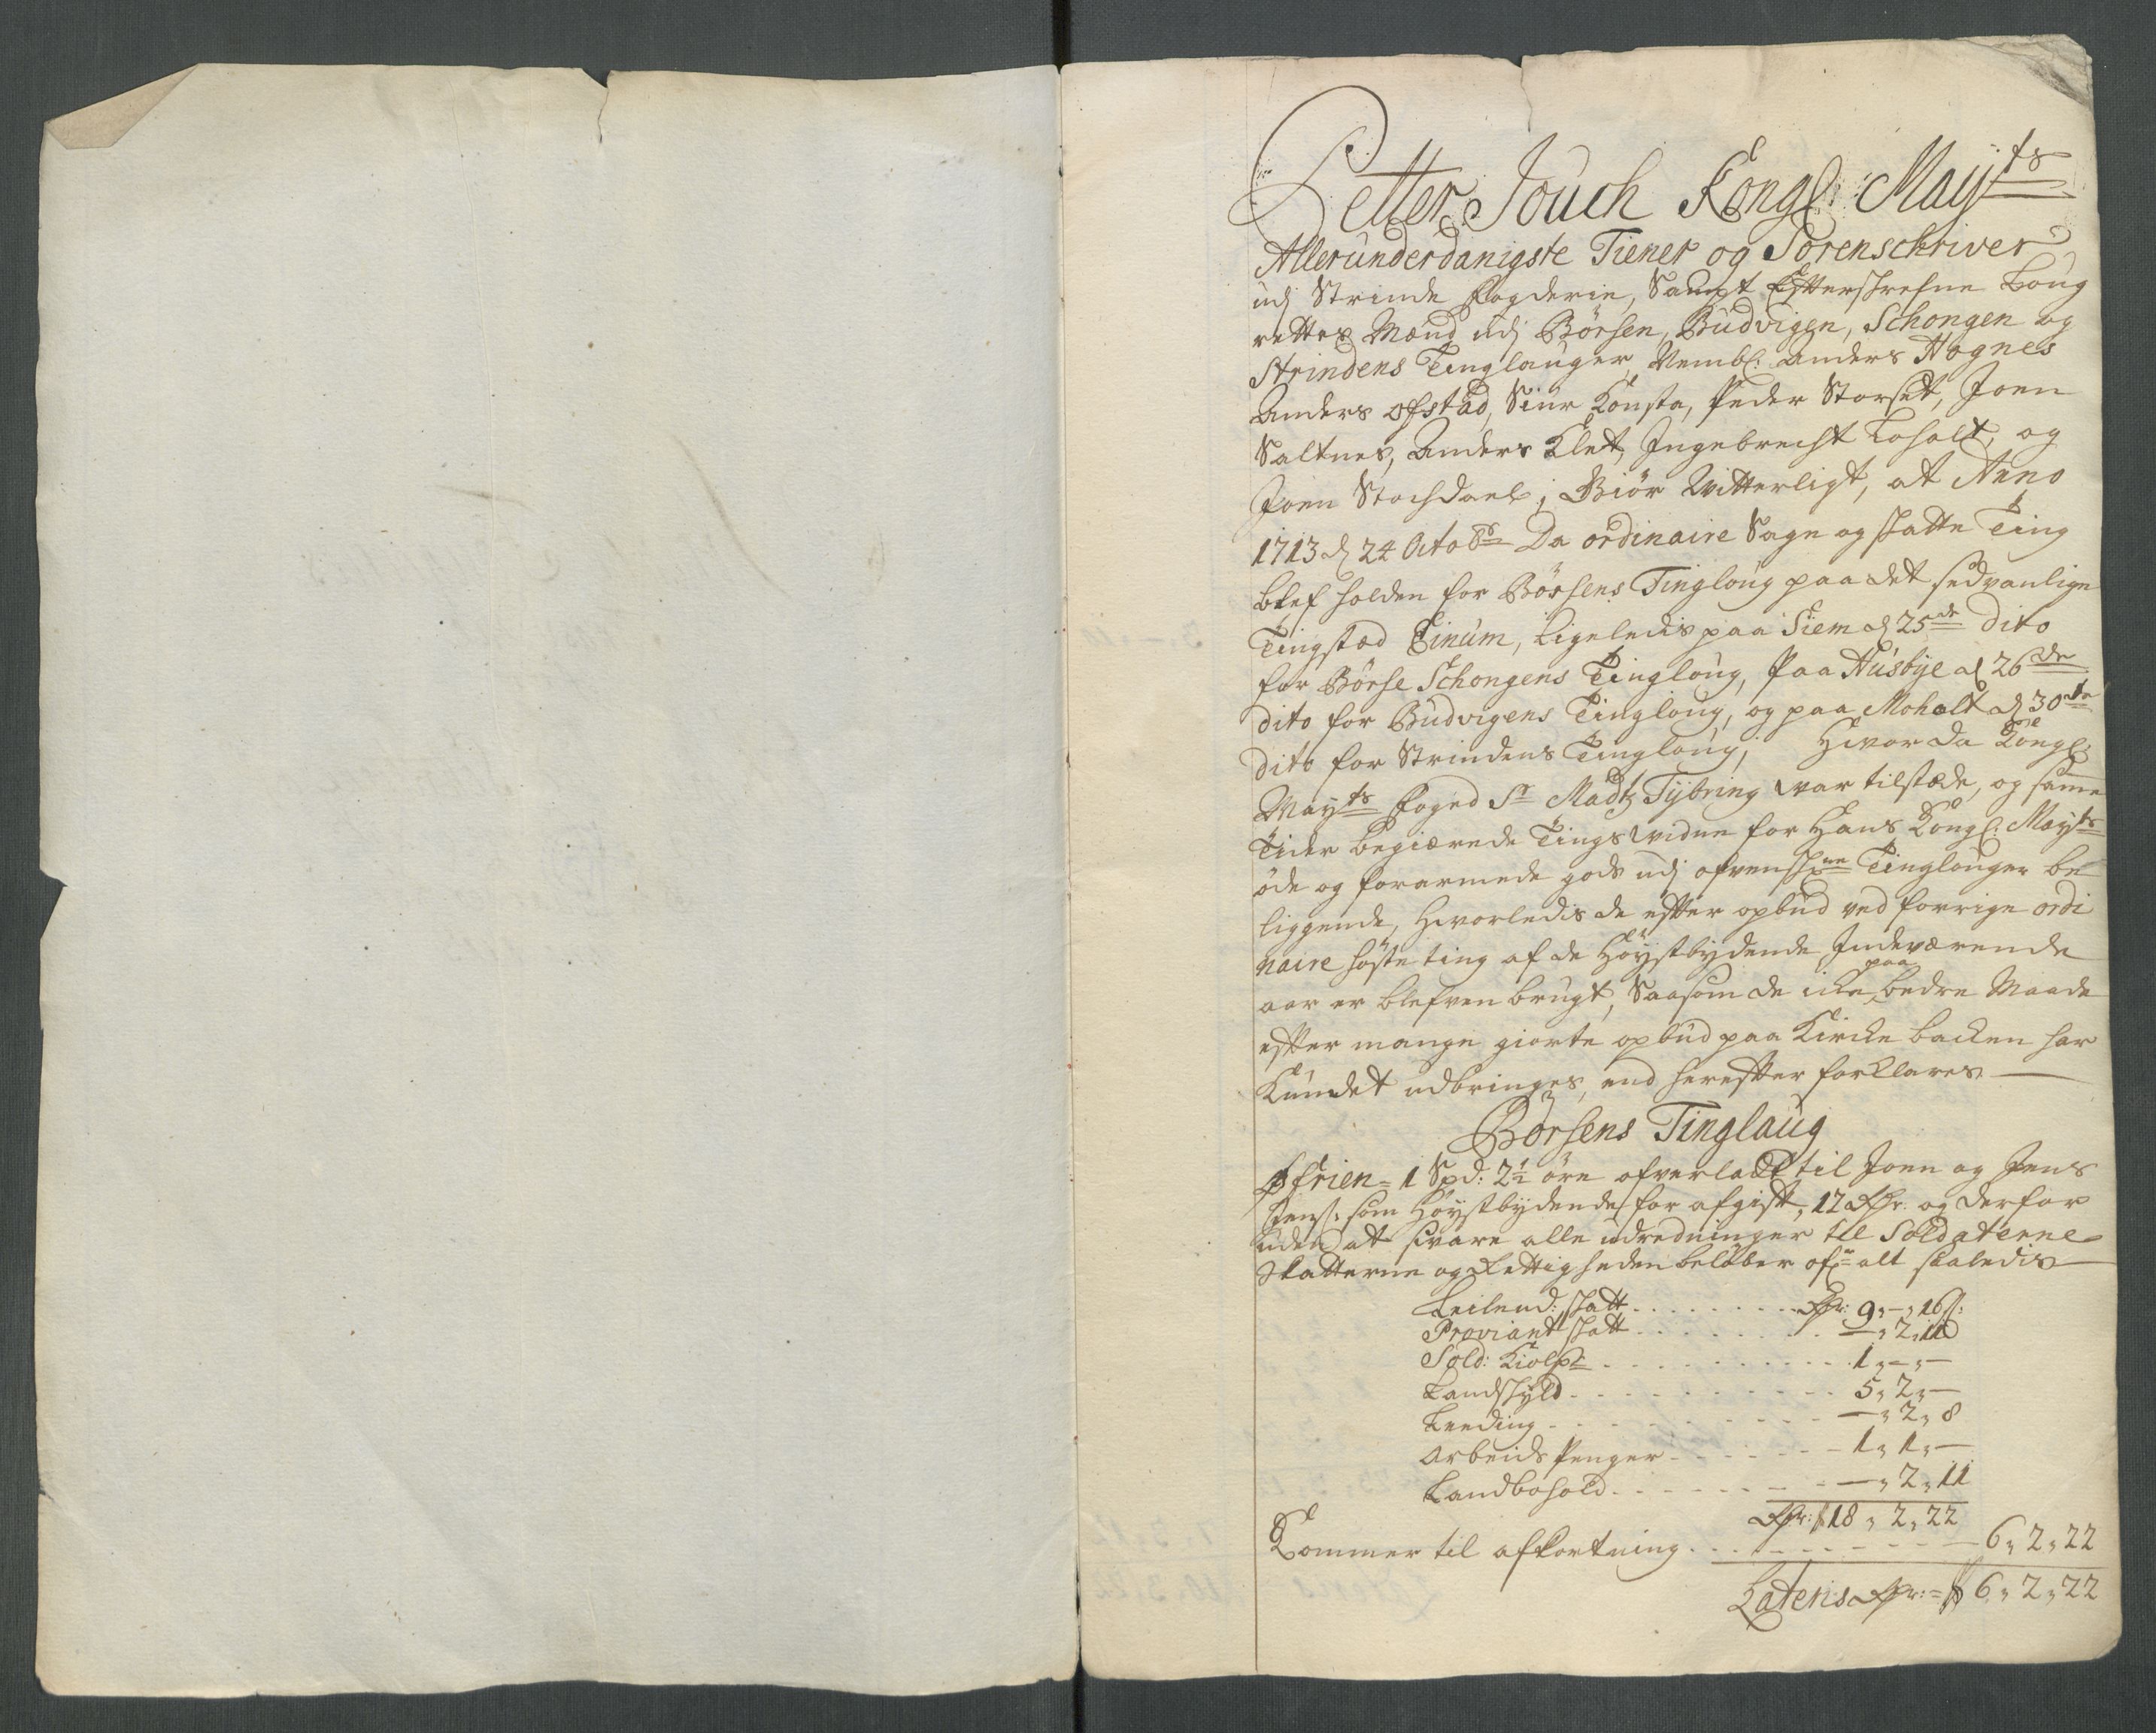 Petter Jouch Kongl: Mayts
Allerunderdanigste Tiener og Sorenschriver
udj Strinde fogderie, Sampt Efterskrefne Laug
rettes Mænd udj Börsen, Budvigen, Schongen og
Strindens Tinglauger, Nembl: Anders Hognes
Anders Ofstad, Siur Kousta, Peder Storset, Joen
Saltnes, Anders Klet, Ingebrecht Loholt, og
Joen Stochdael; Giör Witterligt, at Anno
1713 d 24 Octobr Da ordinaire Sage og skatte Ting
blef holden for Börsens Tingloug paa det sedvanlige
Tingstæd Einum, Ligeledis paa Siem d 25de dito
for Börse Schongens Tingloug, Paa Husbye d 26de
dito for Budvigens Tingloug, og paa Moholt d 30te
dito for Strindens Tingloug; Hvor da Kongl:
Mayts foged Sr Madtz Tybring var tilstæde, og samme
Tider begiærede Tingsvidne for Hans Kongl: Mayts
öde og forarmede gods udj ofvenskne Tinglouger be
liggende, Hvorledis de efter opbud ved forrige ordi
naire höste ting af de Höystbydende Indeværende
aar er blefven brugt, Saasom de icke paa bedre Maade
efter mange giorte opbud paa Kircke backen har
Kundet udbringes, end herefter forklares
Börsens Tinglaug
1 Spd: 2½ öre ofverladt til Joen og Jens
Jens: som Höystbydende for afgift, 12 Rdr. og derfor
uden at svare alle udredninger til Soldaterne
Skatterne og Rettigheden beløber ofr alt saaledis
Leilend: skatt . . . . . . . . . Rdr: 9,,-,,16s:
Proviant skatt . . . . . . . . -,,2,,11
Sold: Kiolp: . . . . . . . . . . 1,,-,,-
Landskyld . . . . . . . . . . . 5,,2,,-
Leeding . . . . . . . . . . . -,,2,,8
Arbeids Penger . . . . . . 1,,1,,-
Landbohold . . . . . . . . -,,2,,11
Rdr: 18,,2,,22
Kommer til afkortning . . . . . . . . . 6,,2,,22
Lateris Rdr:= 6,,2,,22